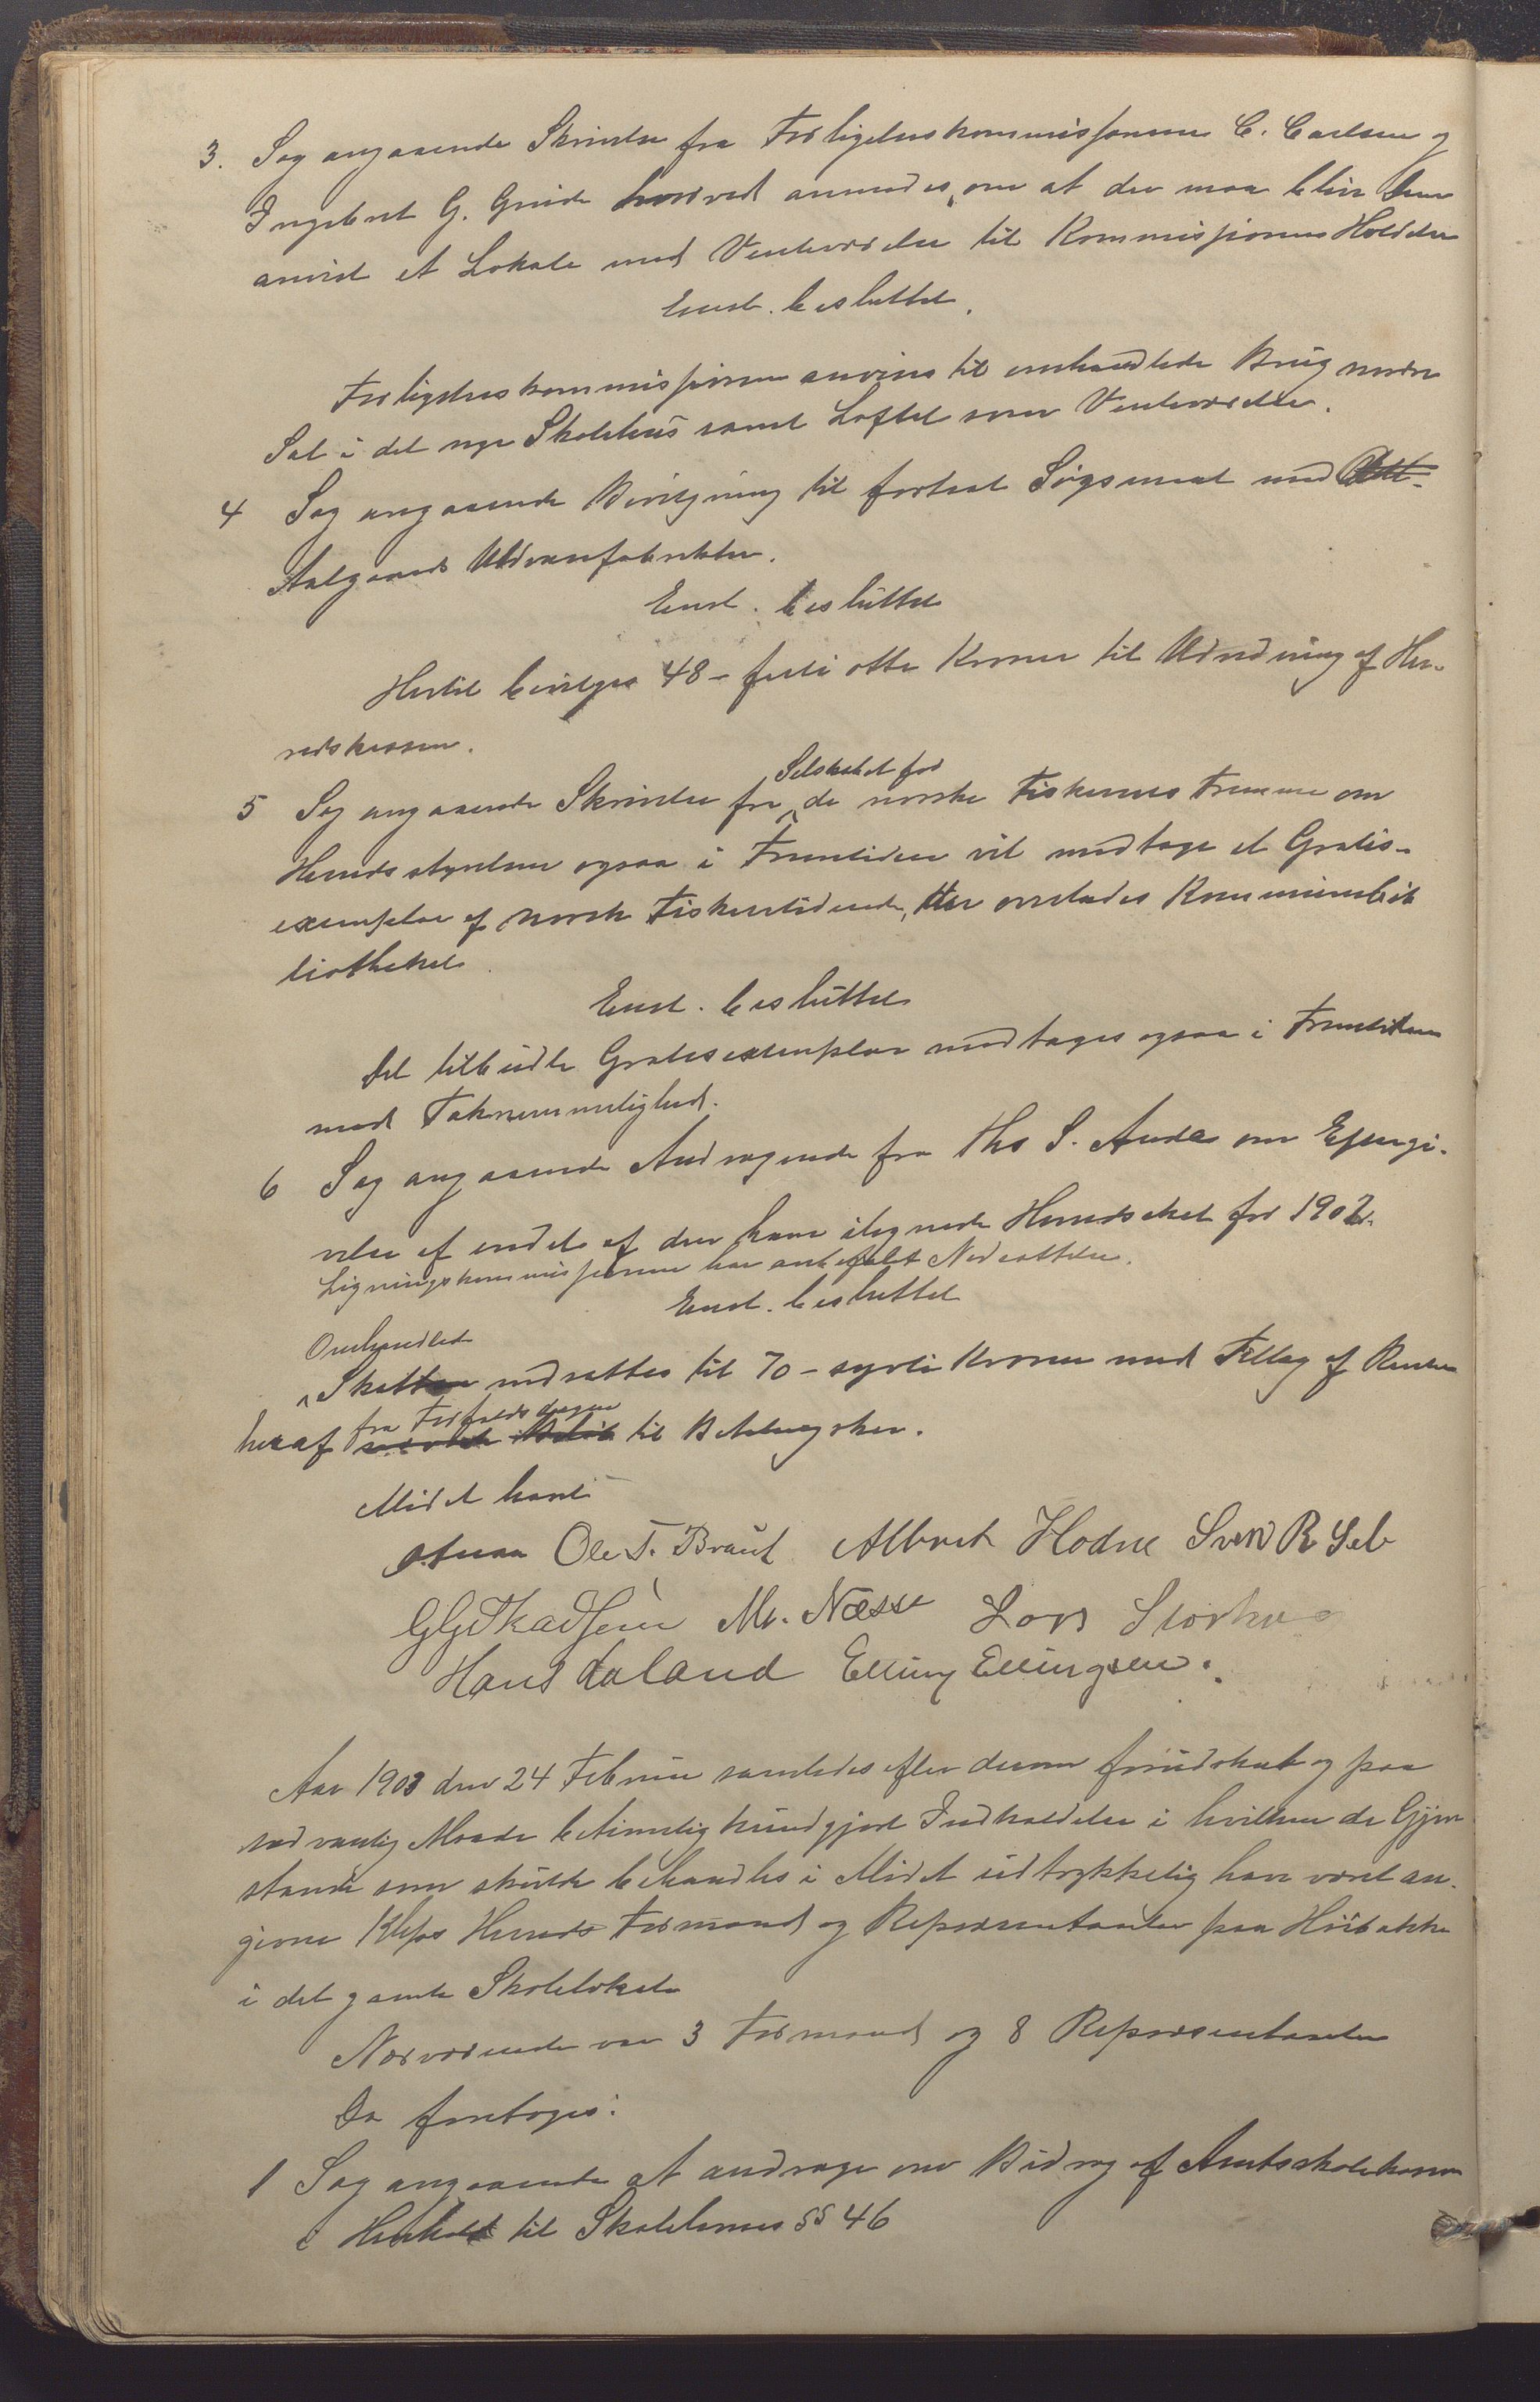 3. Sag angaaende Skrivelse fra Forligelseskommissionen C. Carlsen og
Ingebret G. Grude hvorved anmodes om at der maa blive dem
anvist et Lokale med Venteværelse til Kommissionens Holdelse
Enst. besluttet.
Forligelseskommissionen anvises til omhandlede Brug nedre
Sal i det nye Skolehus samt Loftet som Venteværelse.
4 Sag angaaende Bevilgning til fortsat Søgsmaal mod
Aalgaards Uldvarefabrikker.
Enst. besluttet
Hertil bevilges 48 – førti otte Kroner til Udredning af Her-
redskassen.
5 Sag angaaende Skrivelse fra Selskabet for de norske Fiskeriers Fremme om
Herredsstyrelsen ogsaa i Fremtiden vil modtage et Gratis-
exemplar af norsk Fiskeritidende, der overlades Kommunebib
liotheket.
Enst. besluttet
Det tilbudte Gratisexemplar modtages ogsaa i Fremtiden
med Taknemmelighed.
6 Sag angaaende Andragende fra Ths S. Anda om Eftergi-
velse af endel af den ham ilignede Herredsskat for 1902.
Ligningskommissionen har anbefalet Nedsættelse.
Enst. besluttet
Omhandlede
Skat nedsættes til 70 – sytti Kroner med Tillæg af Renter
heraf fra Forfaldsdagen til Betaling sker.
Mødet hævet
Ole T. Braut Albret Hodne Sven R Sele
M. Næsse Lars Storhaug
Hans Laland Elling Ellingsen.
Aar 1903 den 24 Februar samledes efter derom forudskeet og paa
sædvanlig Maade betimelig kundgjort Indkaldelse i hvilken de Gjen
stande som skulde behandles i Mødet udtrykkelig have været an-
givne Kleps Herreds Formænd og Repræsentanter paa Husbakke
i det gamle Skolelokale
Nærværende var 3 Formænd og 8 Repræsentanter
Da foretoges:
1 Sag angaaende at andrage om Bidrag af Amtsskolekassen
i Henhold til Skolelovens §§ 46